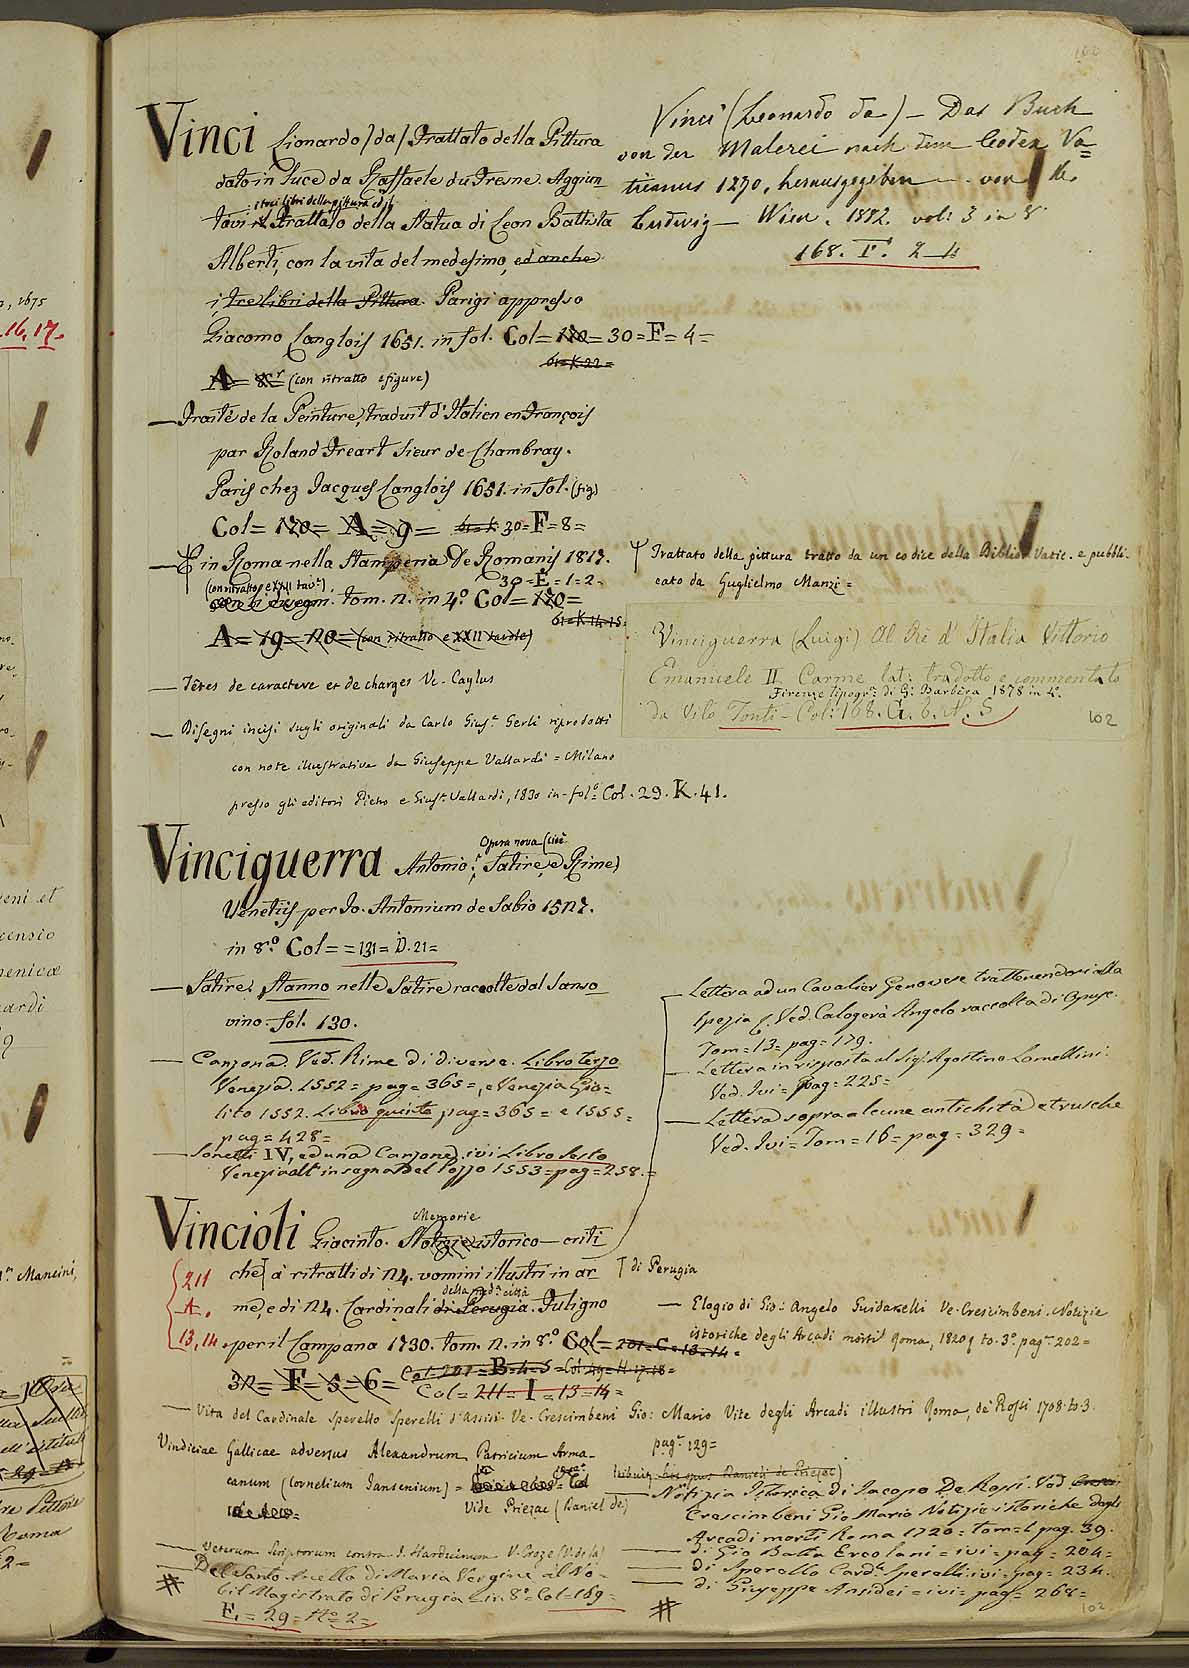 102
Vinci Lionardo (da) Trattato della Pittura
dato in luce da Raffaele du Fresne. Aggiun
i trei libri della pittura ed il
tovi il Trattato della Statua di Leon Battista
Alberti, con la vita del medesimo, ed anche
i tre libri della Pittura. Parigi appresso
Giacomo Langlois 1651. in fol. Col= 120= 30=F=4=
61=K.22=
A= 8.r (con ritratto e figure)
— Traité de la Peinture, traduit d'Italien en François
par Roland Freart Sieur de Chambray.
Paris chez Jacques Langlois 1651. in fol. (fig)
Col= 120= A=9= 61=K 30=F=8=
— E in Roma nella Stamperia De Romanis 1817.
(con ritratto e XXII tav.e) 30=E=1=2=
tom. 2. in 4.o Col=120=
61=K.14.15=
A=19=20=(con ritratto e XXII tavole)
— Têtes de caractere et de charges V. Caylus
— Disegni incisi sugli originali da Carlo Gius.e Gerli riprodotti
con note illustrative da Giuseppe Vallardi = Milano
presso gli editori Pietro e Gius.e Vallardi, 1830 in-fol.o Col. 29. K. 41.
Vinci (Leonardo da) — Das Buch
von der Malerei nach dem Codex Va=
ticanus 1270, herausgegeben — von H.
Ludwig — Wien. 1882. vol: 3 in 8
168. F. 2_4
Trattato della pittura tratto da un codice della Biblio. Vatic. e pubbli.
cato da Guglielmo Manzi=
Vinciguerra (Luigi) Al Rè d'Italia Vittorio
Emanuele II Carme lat: tradotto e commentato
Firenze tipogr: di G: Barbèra 1878 in 4o.
da Vito Tonti - Col: 168. G. 6. N. 5
102
Opera nova (cioè
Vinciguerra Antonio. Satire, e Rime)
Venetiis per Io. Antonium de Sabio 1527.
in 8.o Col= =131= D.21=
— Satire. Stanno nelle Satire raccolte dal Sanso
vino. fol. 130.
— Canzona. Ved. Rime di diversi. Libro terzo
Venezia. 1552= pag=365=, e Venezia Gio-
lito 1552. Libro quinto pag=365= e 1555=
pag=428=
— Sonetti IV, ed una Canzone. ivi Libro Sesto
Venezia all'insegna del Pozzo 1553= pag=258.=
Memorie
Vincioli Giacinto. Notizie istorico-criti
che a' ritratti di 24. uomini illustri in ar
della med.a città
me, e di 24. Cardinali di Perugia. Fuligno
per il Campana 1730. tom. 2. in 8.o Col= 201=C=13=14=
32= F=5=6= Col=201=B=4=5=Col 49=H=17.18=
Col=211=I=13=14=
211
A.
13,14
— Vita del Cardinale Sperello Sperelli d'Assisi. Ve. Crescimbeni Gio: Mario Vite degli Arcadi illustri Roma, de' Rossi 1708. to. 3.
pag.e 129=
Vindiciae Gallicae adversus Alexandrum Patricium Arma-
canum (Cornelium Jansenium) =
Vide Priezac (Daniel de)
— Veterum Scriptorum contra J. Harduinum V. Croze (V. de la)
Del Santo Anello di Maria Vergine al No-
bil Magistrato di Perugia L. in 8.o Col=169=
E. = 29= No 2=
— Lettera ad un Cavalier Genovese trattenendosi alla
Spezia. Ved. Calogerà Angelo raccolta di Opusc.
Tom=13= pag=179.
— Lettera in risposta al Sig. Agostino Lomellini.
Ved. Ivi= pag=225=
— Lettera sopra alcune antichità etrusche
Ved. Ivi= Tom=16= pag=329=
di Perugia
— Elogio di Gio: Angelo Guidarelli Ve. Crescimbeni. Notizie
istoriche degli Arcadi morti Roma, 1820, to. 3.o pag.e 202=
— Notizia Istorica di Jacopo De Rossi. Ved.
Crescimbeni Gio Mario Notizie istoriche degli
Arcadi morti Roma 1720= tom=1. pag. 39.
— di Gio Batta Ercolani= ivi= pag= 204=
— di Sperello Card. Sperelli: ivi. pag= 234=
— di Giuseppe Ansidei= ivi= pag= 268=
102